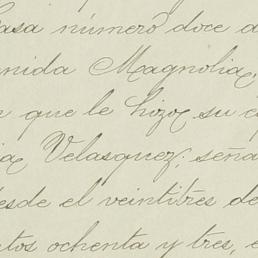 casa número doce d
nida Magnolia,
que le hizo su e
Velasquez, seña
desde el veintitres de
ntos ochenta y tres, e